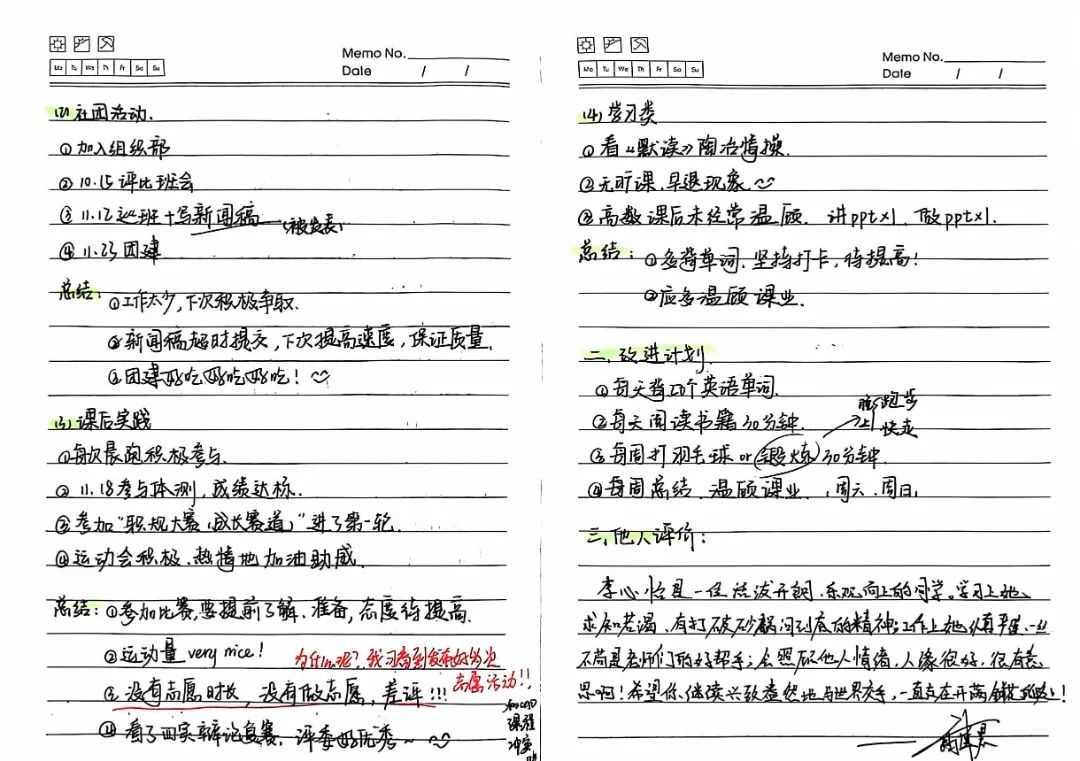 Memo No.
Date / /
Mo Tu We Th Fr Sa Su
(2) 社团活动.
①加入组织部
②10.15评比班会
③11.12巡班+写新闻稿
(被发表)
④11.23团建
总结:①工作太少,下次积极争取.
②新闻稿超时提交,下次提高速度,保证质量.
③团建好吃好吃好吃!
(3) 课后实践
①每次晨跑积极参与.
②11.18参与体测,成绩达标.
③参加“职规大赛(成长赛道)”进了第一轮.
④运动会积极、热情地加油助威.
总结:①参加比赛,要提前了解、准备,态度待提高.
②运动量 very nice!
③没有志愿时长,没有做志愿,差评!!!
志愿活动!!
课程
冲突
④看了四实辩论复赛,评委好优秀~
Memo No.
Date / /
Mo Tu We Th Fr Sa Su
(4) 学习类
①看《默读》陶冶情操.
②无旷课、早退现象.
③高数课后未经常温顾. 讲ppt×1. 做ppt×1.
总结:①多背单词、坚持打卡,待提高!
②应多温顾课业.
二、改进计划.
①每天背20个英语单词.
②每天阅读书籍30分钟.
晚上跑步
快走
③每周打羽毛球or锻炼30分钟.
④每周总结、温顾课业. (周六、周日)
三、他人评价:
李心怡是一位活泼开朗、乐观向上的同学。学习上她
求知若渴,有打破砂锅问到底的精神;工作上她认真
不苟是老师们的好帮手;会照顾他人情绪,人缘很好,很有
希望你继续兴致盎然地与世界交手,一直走在开满鲜花的路上!